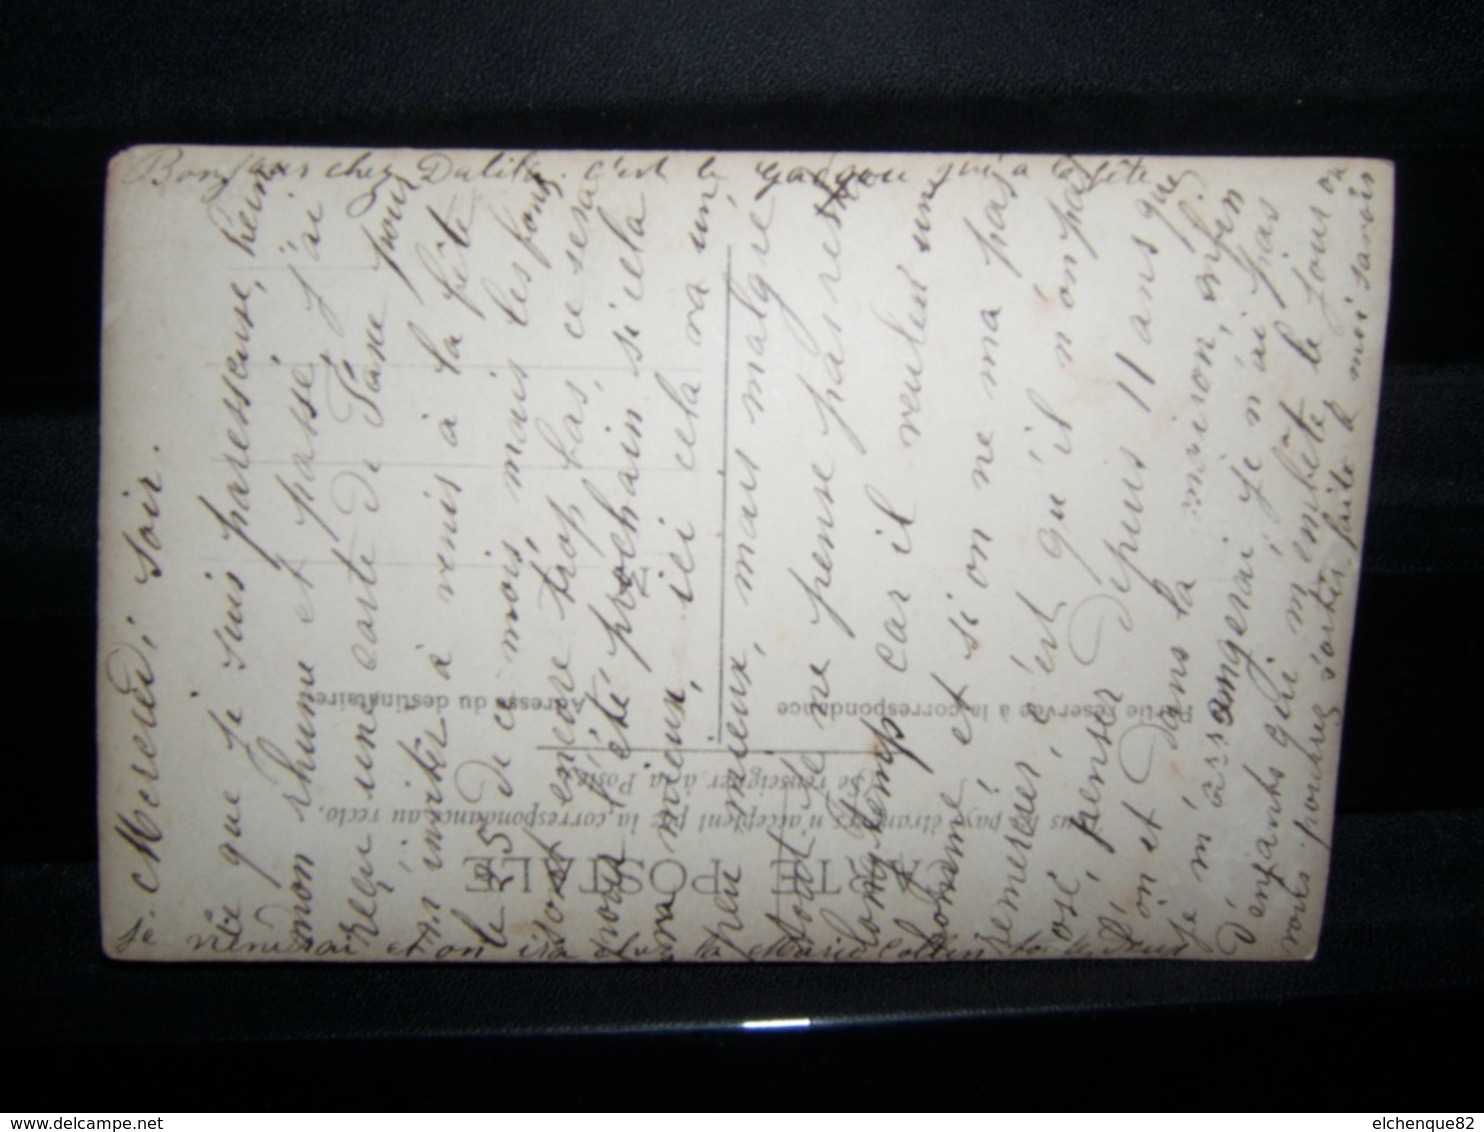 Mercredi soir.
ce que je suis paresseuse, hein
mon rhume et passé, j'ai
reçu une carte de Jane pour
m'inviter à venir à la fête
le 25 de ce mois, mais les fonds
sont encore trop bas, ce sera
pour l'été prochain si cela
va mieux, ici cela va un
peu mieux, mais malgré
tout je ne pense pas rester
longtemp car il veulent une
bonne et si on ne ma pas
remercier, c'est qu'il n'on pas
osé, penser depuis 11 ans que
on et dans la maison, enfin
je m'arrangerai je n'ai pas
d'enfants qui m'embête le jour ou
vous pourrez sortir faite le moi savoir
je viendrai et on ira chez la Marie Collin
Bonjour chez Dalila. c'est le qui a la fête
CARTE POSTALE
Tous les pays étrangers n'acceptent pas la correspondance au recto.
(Se renseigner à la Poste)
Partie réservée à la correspondance
Adresse du destinataire
delcampe.net
elchenque82